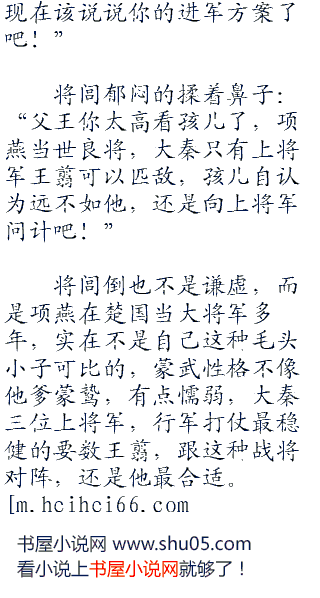 现在该说说你的进军方案了
吧！”
将闾郁闷的揉着鼻子：
“父王你太高看孩儿了，项
燕当世良将，大秦只有上将
军王翦可以匹敌，孩儿自认
为远不如他，还是向上将军
问计吧！”
将闾倒也不是谦虚，而
是项燕在楚国当大将军多
年，实在不是自己这种毛头
小子可比的，蒙武性格不像
他爹蒙骜，有点懦弱，大秦
三位上将军，行军打仗最稳
健的要数王翦，跟这种战将
对阵，还是他最合适。
[m.hcihci66.com
书屋小说网 www.shu05.com
看小说上书屋小说网就够了！